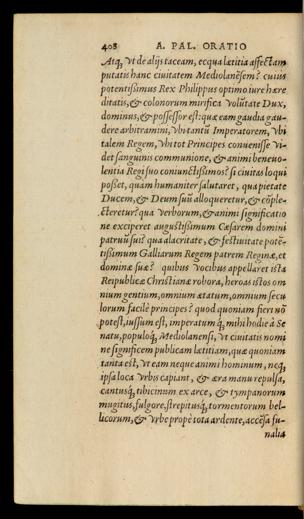 408 A. PAL. ORATIO
Atq́, vt de alijs taceam, ecqua lætitia affectam
putatis hanc ciuitatem Mediolanẽsem? cuius
potentißimus Rex Philippus optimo iure hære
ditatis, & colonorum mirifica volũtate Dux,
dominus, & possessor est: quæ eam gaudia gau-
dere arbitramini, vbi tantũ Imperatorem, vbi
talem Regem, vbi tot Principes conuenisse vi-
det sanguinis communione, & animi beneuo-
lentia Regi suo coniunctißimos? si ciuitas loqui
posset, quàm humaniter salutaret, qua pietate
Ducem, & Deum suũ alloqueretur, & cõple-
cteretur? qua verborum, & animi significatio
ne exciperet augustißimum Cæsarem domini
patruũ sui? qua alacritate, & festiuitate potẽ-
tißimum Galliarum Regem patrem Reginæ, et
dominæ suæ? quibus vocibus appellaret ista
Reipublicæ Christianæ robora, heroas istos om
nium gentium, omnium ætatum, omnium secu
lorum facilè principes? quod quoniam fieri nõ
potest, iussum est, imperatum q́, mihi hodie à Se
natu, populoq́, Mediolanensi, vt ciuitatis nomi
ne significem publicam lætitiam, quæ quoniam
tanta est, vt eam neque animi hominum, neq́,
ipsa loca vrbis capiant, & æra manu repulsa,
cantusq́, tibicinum ex arce, & tympanorum
mugitus, fulgore, strepitusq́, tormentorum bel-
licorum, & vrbe propè tota ardente, accẽsa fu-
nalia